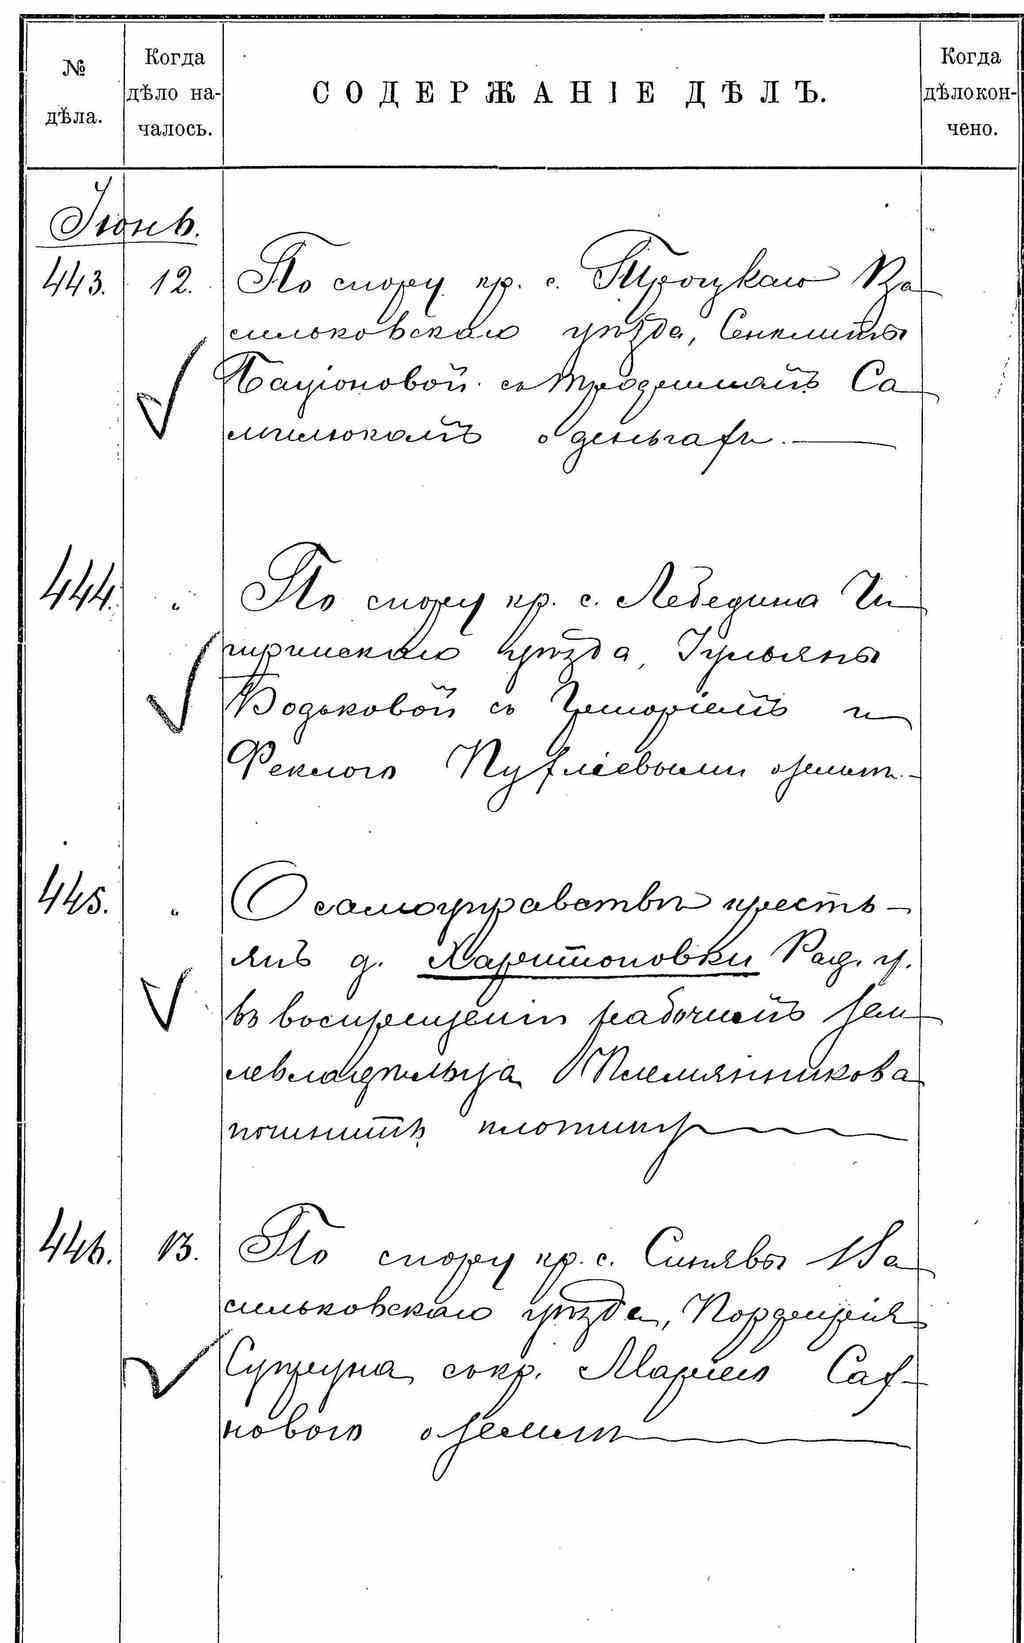 № дѣла.
Когда дѣло на-
чалось.
СОДЕРЖАНІЕ ДѢЛЪ.
Когда дѣло кон-
чено.
Іюнь.
443. 12. По спору кр. с. Троцкаго Ва
сильковскаго уѣзда, Синклиты
съ Са
о деньгахъ.
444. " По спору кр. с. Лебедина Чи
гиринскаго уѣзда, Іульяны
Водьковой съ Григоріемъ и
Феклою о землѣ.
445. " О самоуправствѣ кресть-
янъ д. Харитоновки Рад. у.
въ воспрещеніи рабочимъ зем
левладѣльца Племянникова
починить плотину
446. 13. По спору кр. с. Синявы Ва
сильковскаго уѣзда, Порфирія
Супруна съ кр. Маріею Сах-
новою о землѣ